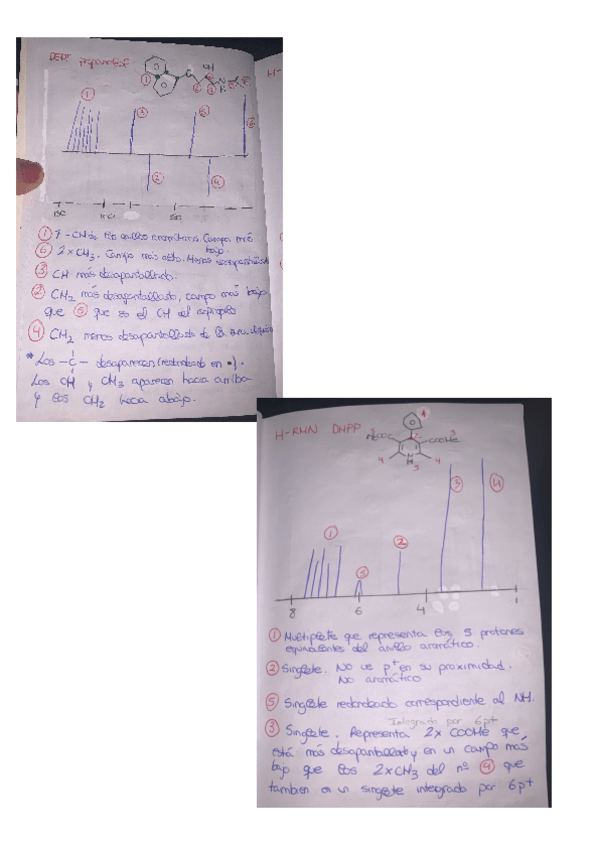 DEPT propranolol
OH
O
N
H
① ③ ⑤ ⑥
② ④
150 100 50
① 7 - CH de los anillos aromáticos. Campo más bajo.
⑥ 2 x CH₃. Campo más alto. Menos desapantallado
③ CH más desapantallado.
② CH₂ más desapantallado, campo más bajo
que ⑤ que es el CH del isopropilo
④ CH₂ menos desapantallado de la
* Los -C- desaparecen (redondeado en •).
Los CH y CH₃ aparecen hacia arriba
y los CH₂ hacia abajo.
H-RMN DHPP
COOMe
N
H
① ⑤ ② ③ 4
8 6 4 1
① Multiplete que representa los 5 protones
equivalentes del anillo aromático.
② Singlete. No ve p⁺ en su proximidad.
No aromático
⑤ Singlete redondeado correspondiente al NH.
Integrado por 6p+
③ Singlete. Representa 2x COOMe que
está más desapantallado y en un campo más
bajo que los 2xCH₃ del nº ④ que
tambien es un singlete integrado por 6p+